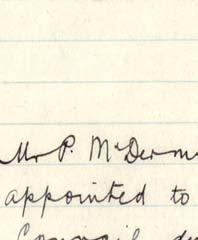 Mr P. McDerm
appointed to
Council